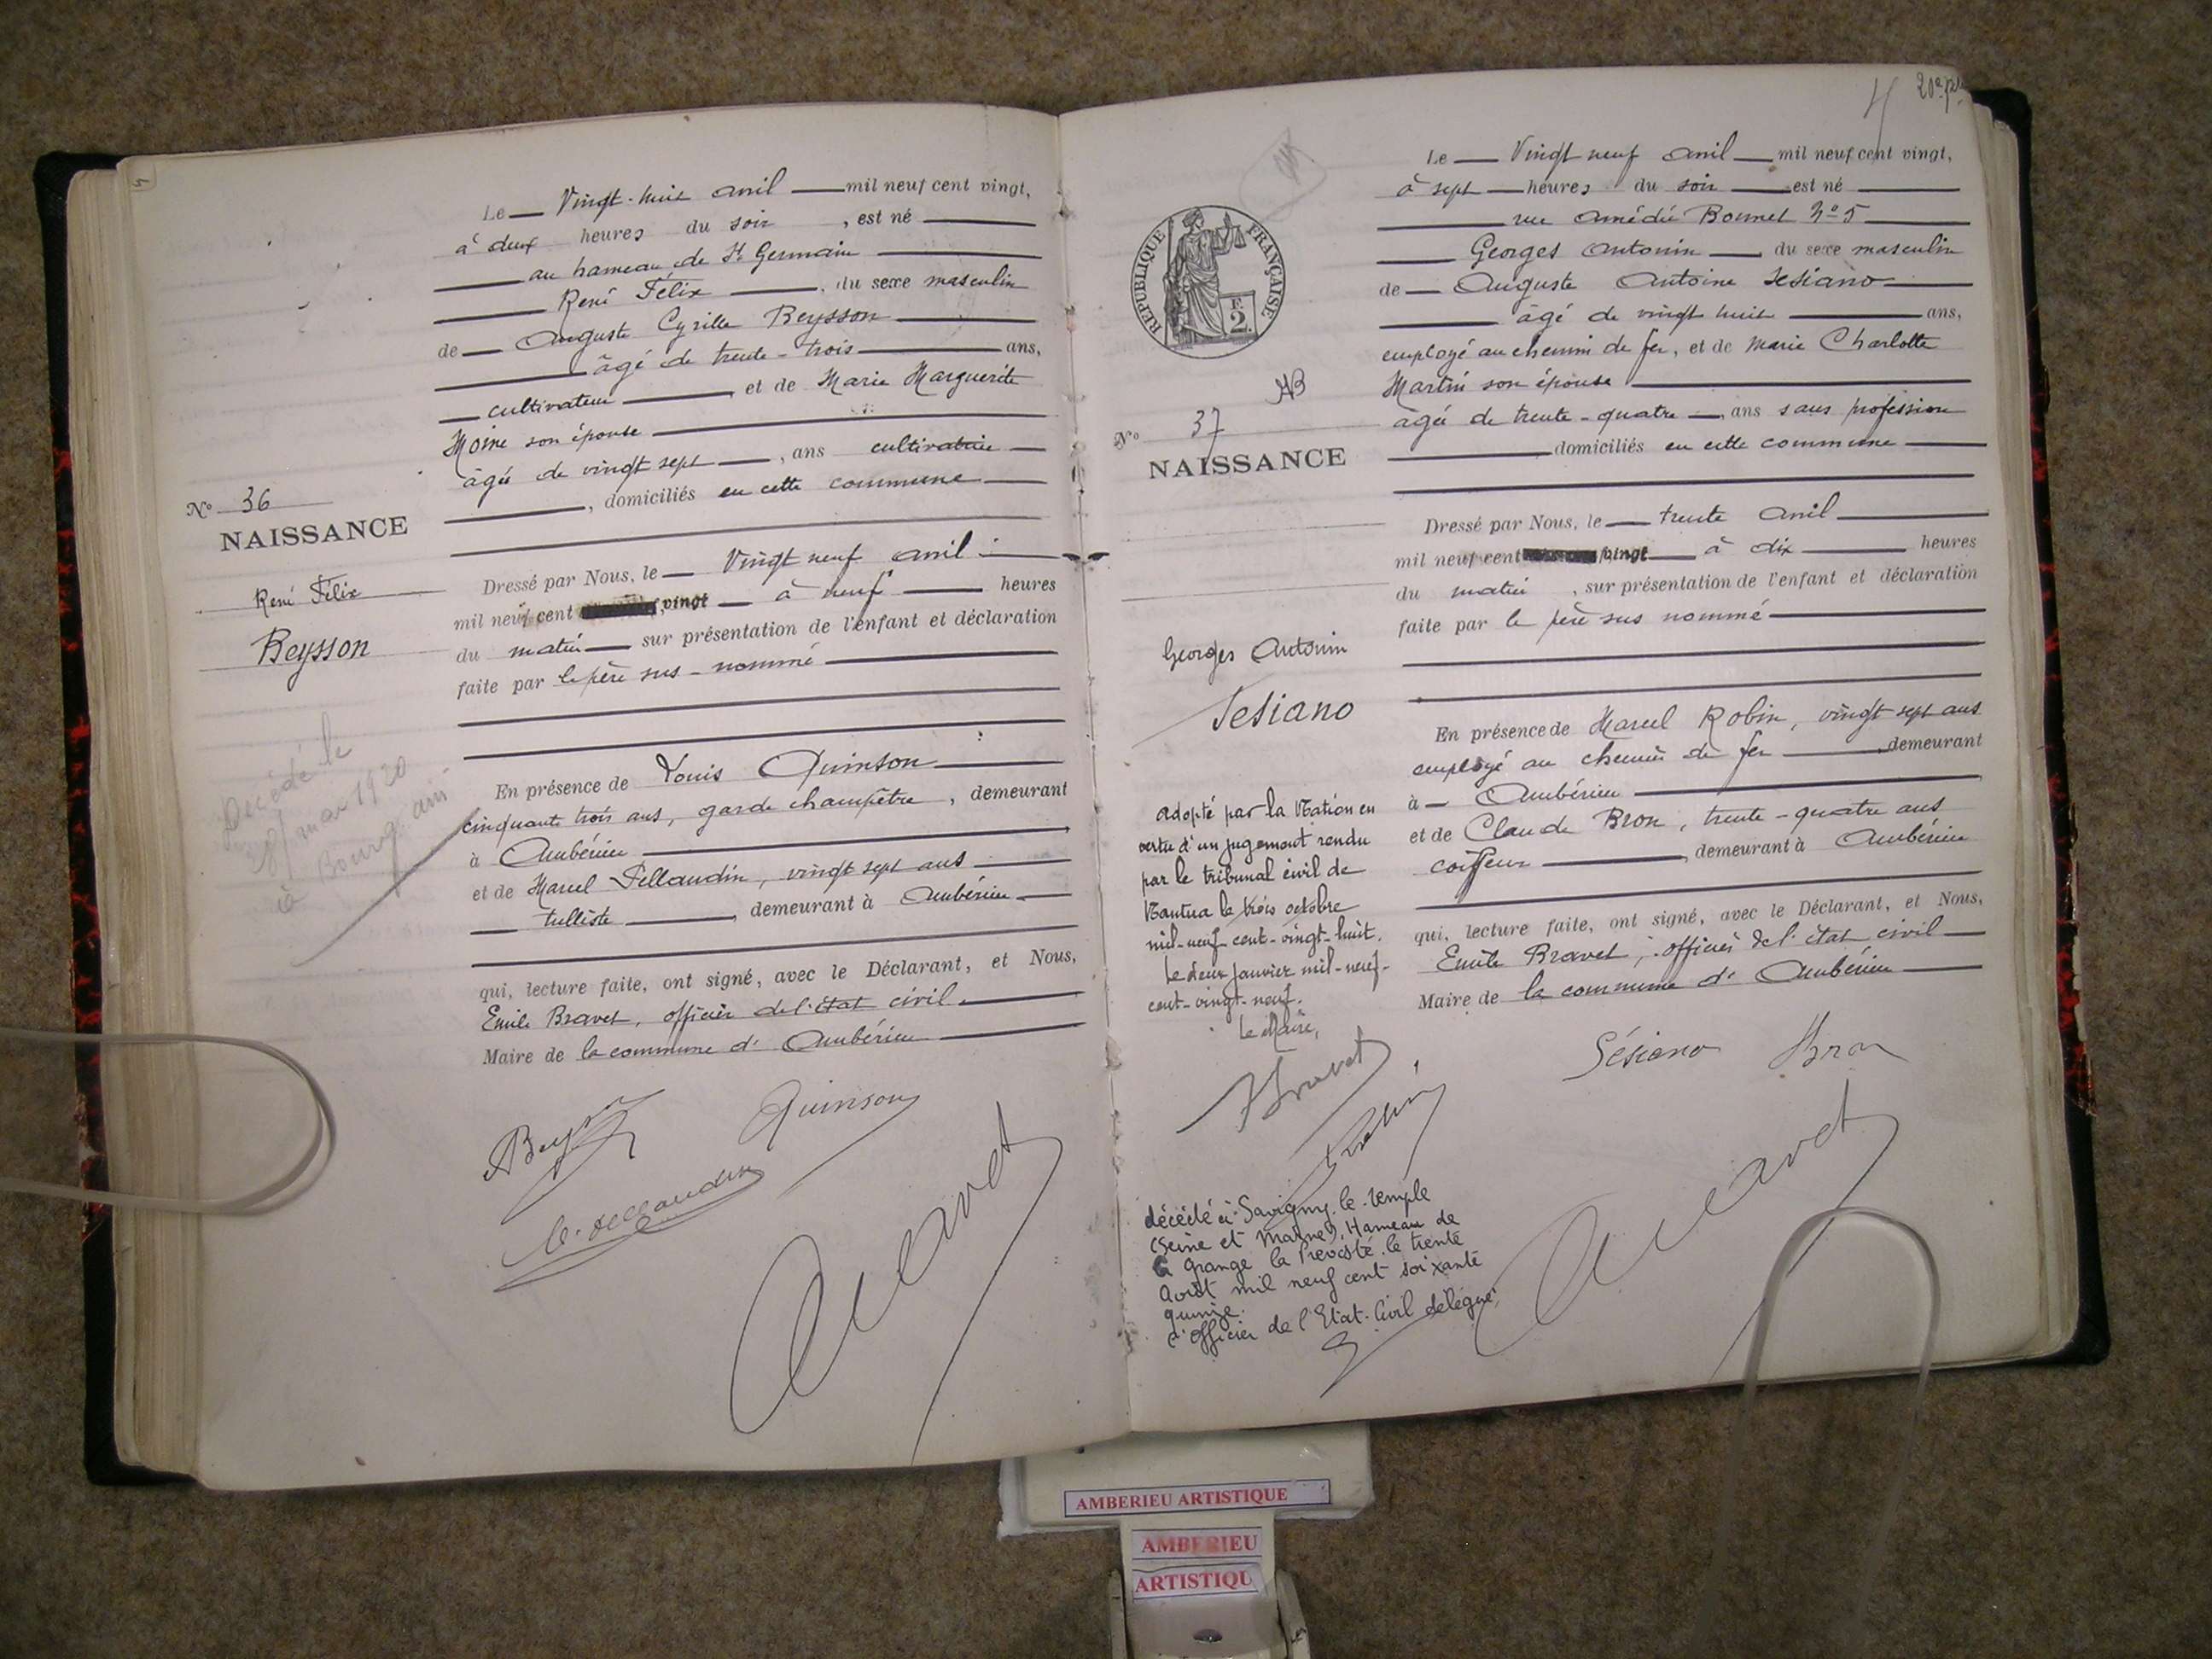 Le Vingt-huit avril mil neuf cent vingt,
à deux heures du soir, est né
au hameau de St Germain
René Félix, du sexe masculin
de Auguste Cyrille Beysson
âgé de trente-trois ans,
cultivateur, et de Marie Marguerite
Moine son épouse
âgée de vingt sept, ans cultivatrice
, domiciliés en cette commune
No 36
NAISSANCE
René Félix
Beysson
Dressé par Nous, le Vingt neuf avril
mil neuf cent vingt à neuf heures
du matin sur présentation de l'enfant et déclaration
faite par le père sus-nommé
Décédé le
mai 1920
à Bourg
En présence de Louis Quinson
cinquante trois ans, garde champêtre, demeurant
à Ambérieu
et de Marcel Dellandin, vingt sept ans
tulliste, demeurant à Ambérieu
qui, lecture faite, ont signé, avec le Déclarant, et Nous,
Emile Bravet, officier de l'état civil
Maire de la commune d'Ambérieu
Quinson
Le Vingt neuf avril mil neuf cent vingt,
à sept heures du soir est né
rue Amédée Bonnet No 5
Georges Antonin du sexe masculin
de Auguste Antoine Sesiano
âgé de vingt huit ans,
employé au chemin de fer, et de Marie Charlotte
Martin son épouse
âgée de trente-quatre, ans sans profession
domiciliés en cette commune
RÉPUBLIQUE FRANÇAISE
F.
2.
No 37
NAISSANCE
Georges Antonin
Sesiano
Dressé par Nous, le trente avril
mil neuf cent vingt à dix heures
du matin, sur présentation de l'enfant et déclaration
faite par le père sus nommé
En présence de Marcel Robin, vingt sept ans
employé au chemin de fer, demeurant
à Ambérieu
et de Claude Bron, trente-quatre ans
coiffeur, demeurant à Ambérieu
qui, lecture faite, ont signé, avec le Déclarant, et Nous,
Emile Bravet, officier de l'état civil
Maire de la commune d'Ambérieu
Adopté par la Nation en
vertu d'un jugement rendu
par le tribunal civil de
Nantua le trois octobre
mil-neuf-cent-vingt-huit.
Le deux janvier mil-neuf-
cent-vingt-neuf.
Le Maire,
Sésiano Bron
décédé à Savigny-le-Temple
(Seine et Marne), Hameau de
la Grange la Prévosté le trente
Août mil neuf cent soixante
quinze.
L'Officier de l'Etat-Civil délégué,
AMBERIEU ARTISTIQUE
AMBERIEU
ARTISTIQU